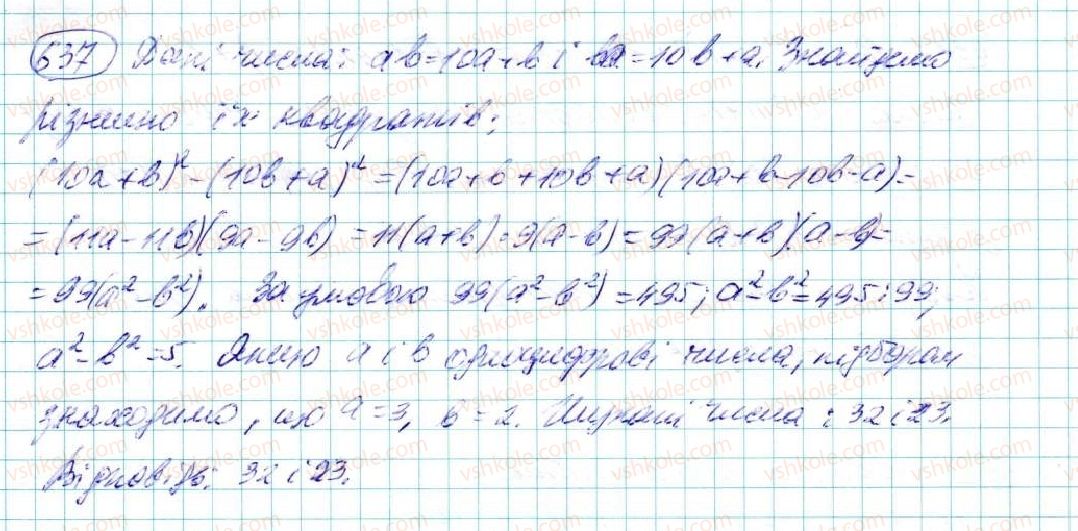 637 Дані числа: ab=10a+b і ba=10b+a. Знайдемо
різницю їх квадратів:
(10a+b)²-(10b+a)²=(10a+b+10b+a)(10a+b-10b-a)=
=(11a-11b)(9a-9b)=11(a+b)·9(a-b)=99(a+b)(a-b)=
=99(a²-b²). За умовою 99(a²-b²)=495; a²-b²=495:99;
a²-b²=5. Якщо a і b одноцифрові числа, підбором
знаходимо, що a=3, b=2. Шукані числа: 32 і 23.
Відповідь: 32 і 23.